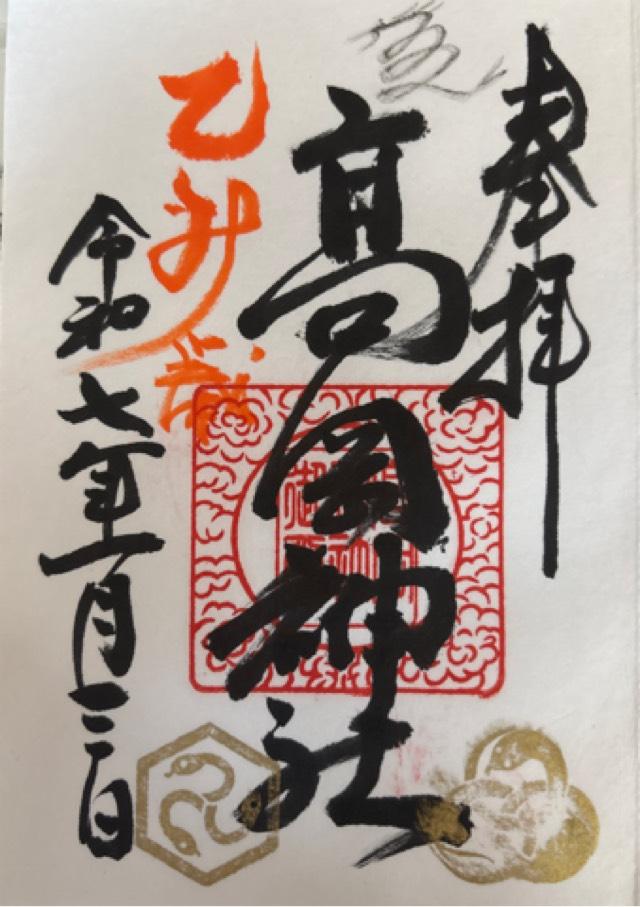 奉拝
高岡神社
乙巳歳
令和七年一月三日